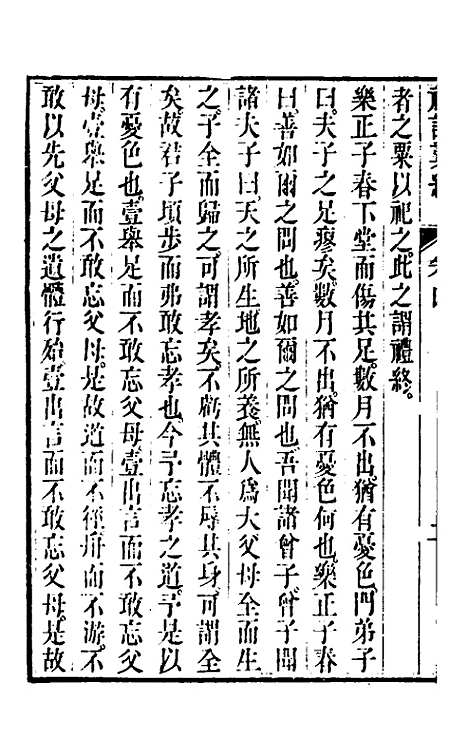 者之粟以祀之此之謂禮終。
樂正子春下堂而傷其足數月不出猶有憂色門弟子
曰夫子之足瘳矣數月不出猶有憂色何也樂正子春
曰善如爾之問也善如爾之問也吾聞諸曾子曾子聞
諸夫子曰天之所生地之所養無人爲大父母全而生
之子全而歸之可謂孝矣不虧其體不辱其身可謂全
矣故君子頃步而弗敢忘孝也今予忘孝之道予是以
有憂色也壹舉足而不敢忘父母壹出言而不敢忘父
母壹舉足而不敢忘父母是故道而不徑舟而不游不
敢以先父母之遺體行殆壹出言而不敢忘父母是故